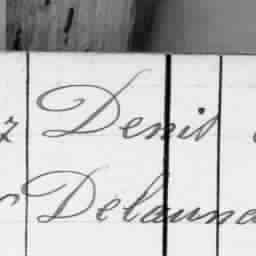 z Denis
Delauna